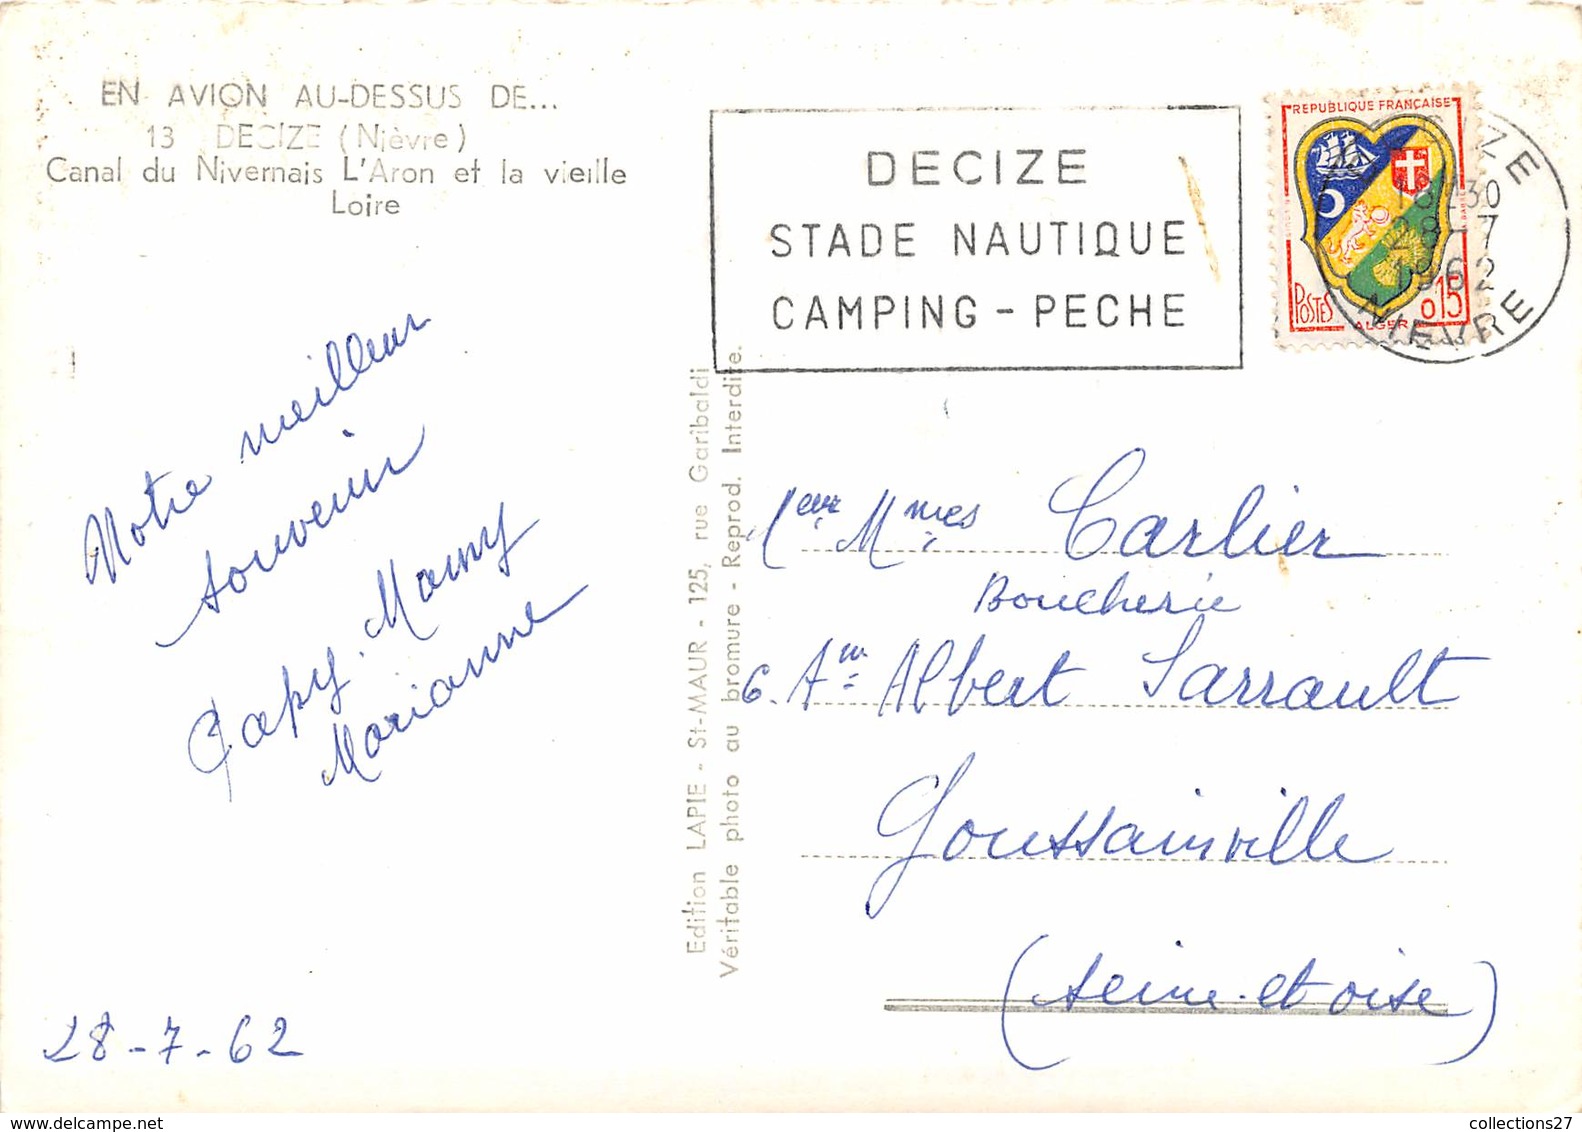 EN AVION AU-DESSUS DE...
13 DECIZE (Nièvre)
Canal du Nivernais L'Aron et la vieille
Loire
DECIZE
STADE NAUTIQUE
CAMPING - PECHE
REPUBLIQUE FRANÇAISE
POSTES
ALGER
0,15
18H30
28-7
1962
NIEVRE
Notre meilleur
souvenir
Papy. Mamy
Marianne
28-7-62
Edition LAPIE - St-MAUR - 125, rue Garibaldi
Véritable photo au bromure - Reprod. Interdite.
Mmes Carlier
Boucherie
6. Albert Sarrault
Goussainville
(Seine-et-oise)
collections27